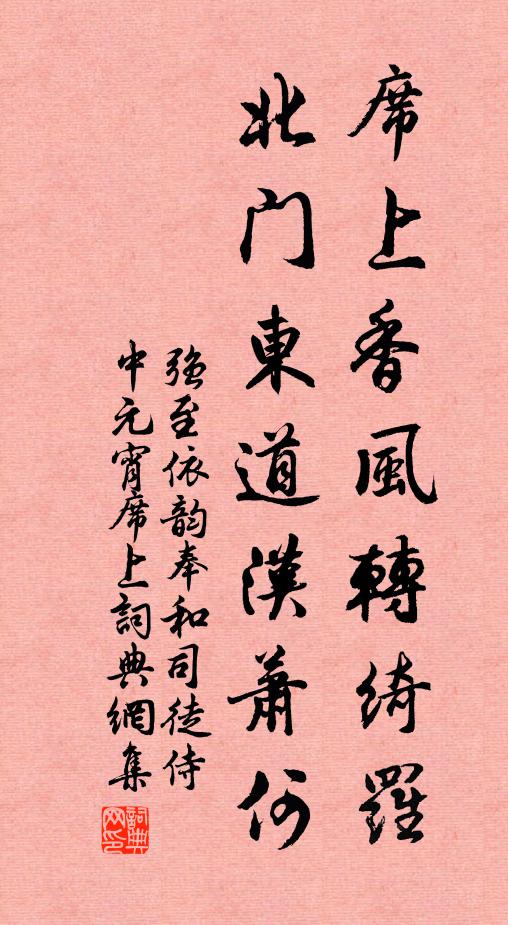 席上香風轉綺羅
北门東道漢蕭何
強至依韵奉和司徒侍
中元宵席上詞典網集
詞典网印